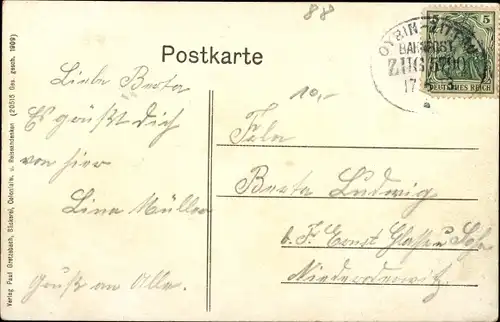 88
Postkarte
OYBIN-ZITTAU
BAHNPOST
ZUG
17
5
DEUTSCHES REICH
10,-
Liebe Berta
Es grüßt Dich
von hier
Lina Müller
Gruß an Alle.
Frln
Berta Ludwig
b. F. Ernst
Niederoderwitz
Verlag Paul Gretzabach, Bäckerei, Colonialw. u. Reiseandenken (20515 Ges. gesch. 1909)